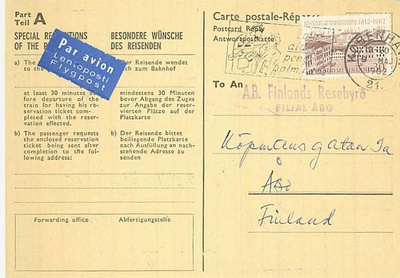 Part
Teil A
SPECIAL RE
OF THE
BESONDERE WÜNSCHE
DES REISENDEN
Par avion
Lentoposti
Flygpost
a) The
a) Der Reisende wendet
zum Bahnhof
at least 30 minutes before departure
fore departure of the
train for having his re-
servation ticket com-
pleted with the
reservation effected.
mindestens 30 Minuten
bevor Abgang des Zuges
zur Angabe der reser-
vierten Plätze auf der
Platzkarte
b) The passenger requests
the enclosed reservation
ticket being sent after
completion to the fol-
lowing address:
b) Der Reisende bittet
beiliegende Platzkarte
nach Ausfüllung an nach-
stehende Adresse zu
senden
Forwarding office
Abfertigungsstelle
Carte postale-Réponse
Postcard Reply
Antwortpostkarte
1812-1962
KØBENHAVN
1962
To An
A.B. Finlands Resebyrå
FILIAL ÅBO
Köpmansgatan 1a
Åbo
Finland